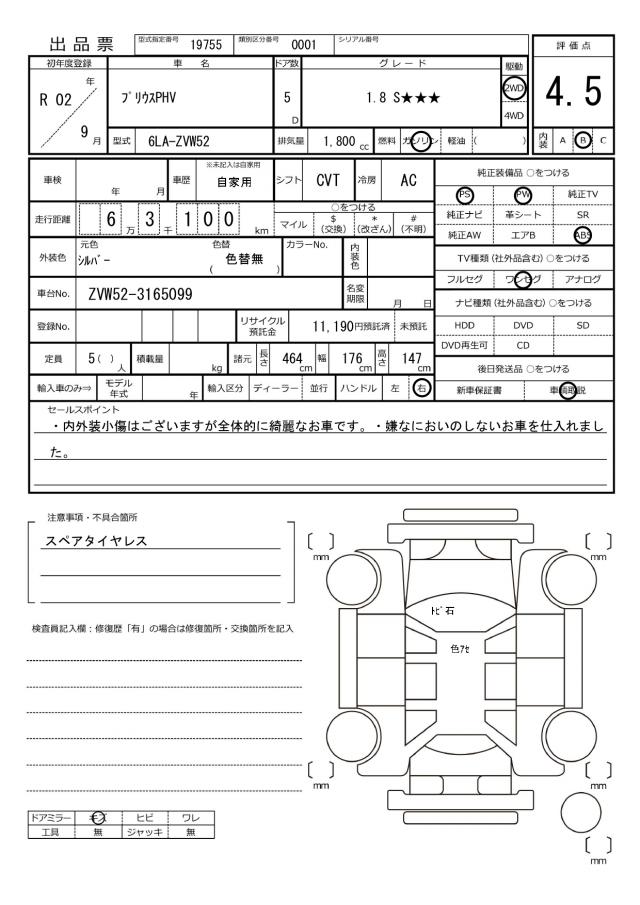 出品票 型式指定番号 19755 類別区分番号 0001 シリアル番号
評価点
4.5
初年度登録 車名 ドア数 グレード 駆動
R 02 年 9 月 ﾌﾟﾘｳｽPHV 5 D 1.8 S★★★ 2WD 4WD
型式 6LA-ZVW52 排気量 1,800 cc 燃料 ガソリン 軽油 ( ) 内装 A B C
車検 年 月 車歴 ※未記入は自家用 自家用 シフト CVT 冷房 AC
走行距離 6 万 3 千 1 0 0 km ○をつける
マイル $ (交換) * (改ざん) # (不明)
外装色 元色 ｼﾙﾊﾞｰ 色替 ( 色替無 ) カラーNo. 内装色
車台No. ZVW52-3165099 名変期限 月 日
登録No. リサイクル預託金 11,190円預託済 未預託
定員 5( ) 人 積載量 kg 諸元 長さ 464 cm 幅 176 cm 高さ 147 cm
輸入車のみ⇒ モデル年式 年 輸入区分 ディーラー 並行 ハンドル 左 右
純正装備品 ○をつける
PS PW 純正TV
純正ナビ 革シート SR
純正AW エアB ABS
TV種類 (社外品含む) ○をつける
フルセグ ワンセグ アナログ
ナビ種類 (社外品含む) ○をつける
HDD DVD SD
DVD再生可 CD
後日発送品 ○をつける
新車保証書 車輌取説
セールスポイント
・内外装小傷はございますが全体的に綺麗なお車です。・嫌なにおいのしないお車を仕入れまし
た。
注意事項・不具合箇所
スペアタイヤレス
検査員記入欄：修復歴「有」の場合は修復箇所・交換箇所を記入
ドアミラー キズ ヒビ ワレ
工具 無 ジャッキ 無
〔 〕 mm
〔 〕 mm
ﾄﾋﾞ石
色ｱｾ
〔 〕 mm
〔 〕 mm
〔 〕 mm